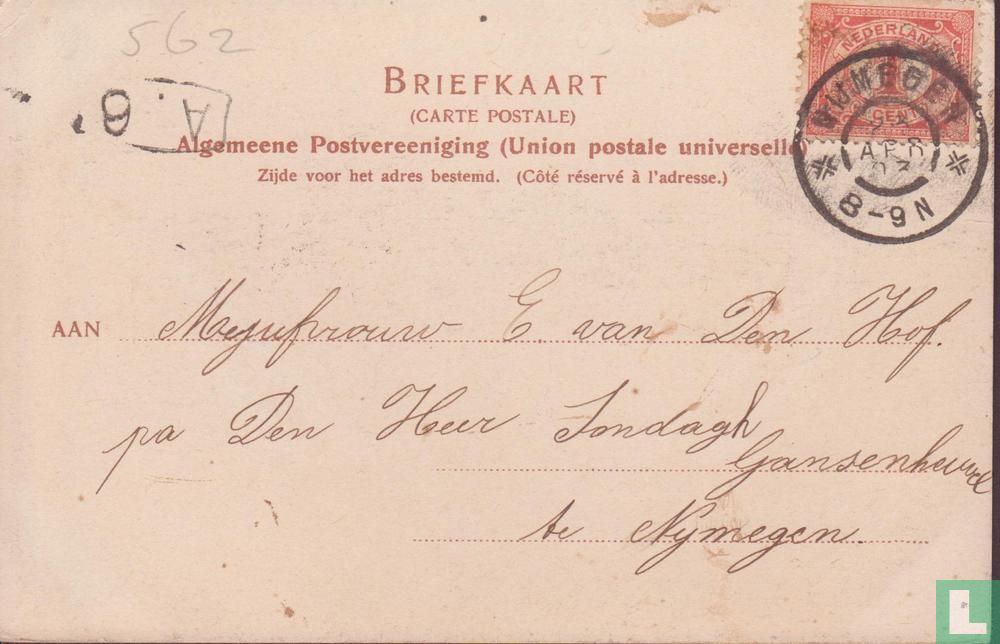 562
A. 6
BRIEFKAART
(CARTE POSTALE)
Algemeene Postvereeniging (Union postale universelle)
Zijde voor het adres bestemd. (Côté réservé à l'adresse.)
NEDERLAND
1
CENT
NIJMEGEN
APR
03
8-9N
AAN Mejufvrouw E. van Den Hof.
pa Den Heer Sondagh
Gansenheuvel
te Nymegen.
L